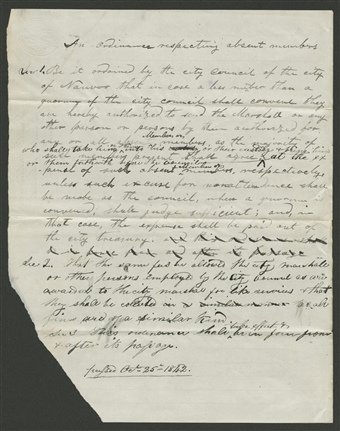 An Ordinance respecting absent members
Sec 1. Be it ordained by the city council of the city
of Nauvoo that in case a less number than a
quorum of the city council shall convene they
are hereby authorized to send the Marshall or any
other person or persons by them authorized for
any or all absent members, as the
Members or,
who shall take them into his custody or their custody
such members present shall agree at the ex
or them forthwith
pense of such absent members, respectively
unless such excuse for nonattendance shall
be made as the council, when a quorum
convened, shall judge sufficient; and, in
that case, the expense shall be paid out of
the city treasury.
Sec 2. That the same fees be allowed the city marshall
or other persons employed by the city council as are
awarded to the city marshall for like services & that
they shall be collected as all
fines are of a similar kind
Sec 3 This ordinance shall be in force from
take effect &
& after its passage.
passed Oct. 25th 1842.